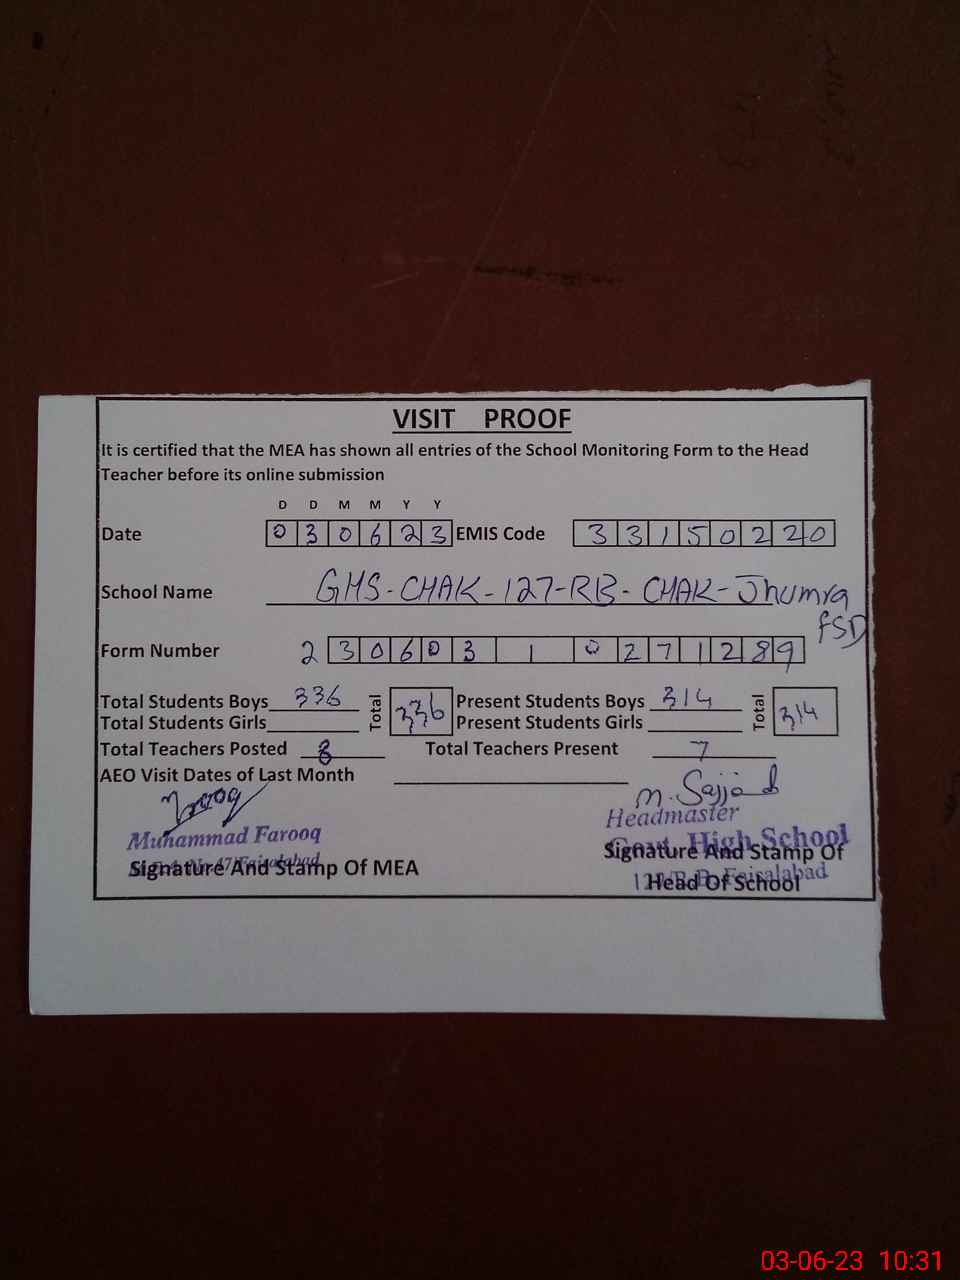 VISIT PROOF
It is certified that the MEA has shown all entries of the School Monitoring Form to the Head
Teacher before its online submission
D D M M Y Y
Date 0 3 0 6 2 3 EMIS Code 3 3 1 5 0 2 2 0
School Name GHS-CHAK-127-RB-CHAK-Jhumra
FSD
Form Number 2 3 0 6 0 3 1 0 2 7 1 2 8 9
Total Students Boys 336 Total 336 Present Students Boys 314 Total 314
Total Students Girls Present Students Girls
Total Teachers Posted 8 Total Teachers Present 7
AEO Visit Dates of Last Month
Farooq M. Sajjad
Muhammad Farooq Headmaster
Govt. High School
Signature And Stamp Of MEA Signature And Stamp Of
Faisalabad Faisalabad
Head Of School
03-06-23 10:31